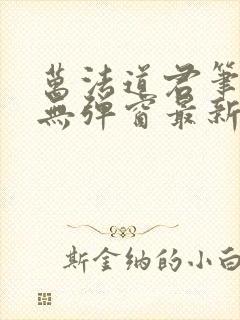 萬法道君筆
無彈窗最新
斯金纳的小白